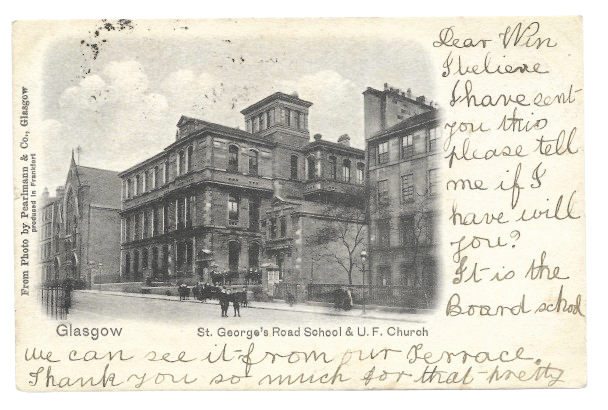 Dear Win
I believe
I have sent
you this
please tell
me if I
have will
you?
It is the
Board school
we can see it from our Terrace.
Thank you so much for that pretty
From Photo by Pearlmann & Co., Glasgow
produced in Frankfort
Glasgow
St. George's Road School & U. F. Church